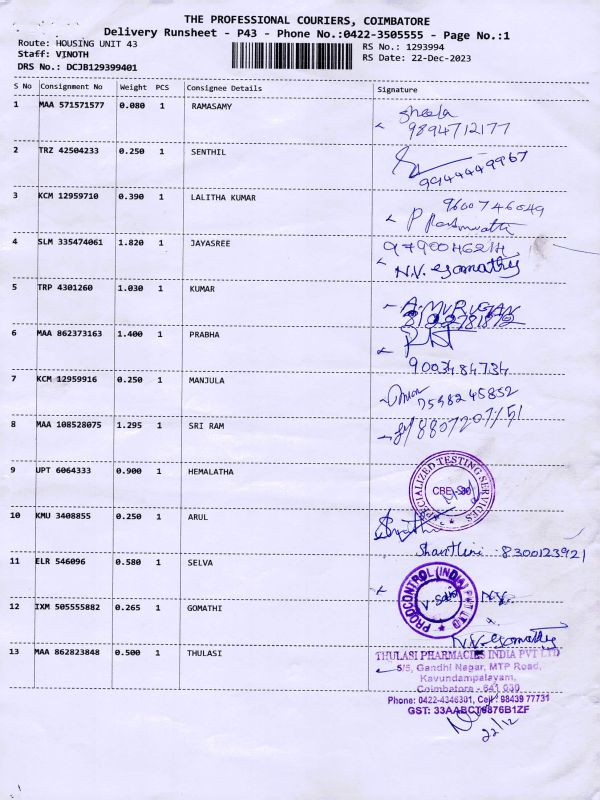 THE PROFESSIONAL COURIERS, COIMBATORE
Delivery Runsheet - P43 - Phone No.:0422-3505555 - Page No.:1
Route: HOUSING UNIT 43 RS No.: 1293994
Staff: VINOTH RS Date: 22-Dec-2023
DRS No.: DCJB129399401
S No Consignment No Weight PCS Consignee Details Signature
1 MAA 571571577 0.080 1 RAMASAMY
Sheela
9894712177
2 TRZ 42504233 0.250 1 SENTHIL
9944449967
3 KCM 12959710 0.390 1 LALITHA KUMAR
9600746049
P
4 SLM 335474061 1.820 1 JAYASREE
N.V. Gomathy
5 TRP 4301260 1.030 1 KUMAR
A. MURUGAN
6 MAA 862373163 1.400 1 PRABHA
9003484734
7 KCM 12959916 0.250 1 MANJULA
7598245852
8 MAA 108528075 1.295 1 SRI RAM
8807207151
9 UPT 6064333 0.900 1 HEMALATHA
SPECIALIZED TESTING SERVICES
CBE
10 KMU 3408855 0.250 1 ARUL
8300123921
11 ELR 546096 0.580 1 SELVA
PRODCONTROL (INDIA) PVT LTD
12 IXM 505555882 0.265 1 GOMATHI
N.V. Gomathy
13 MAA 862823848 0.500 1 THULASI
THULASI PHARMACIES INDIA PVT LTD
5/5, Gandhi Nagar, MTP Road,
Kavundampalayam,
Coimbatore - 641 030
Phone: 0422-4346301, Cell: 98439 77731
GST: 33AABCT6876B1ZF
22/12